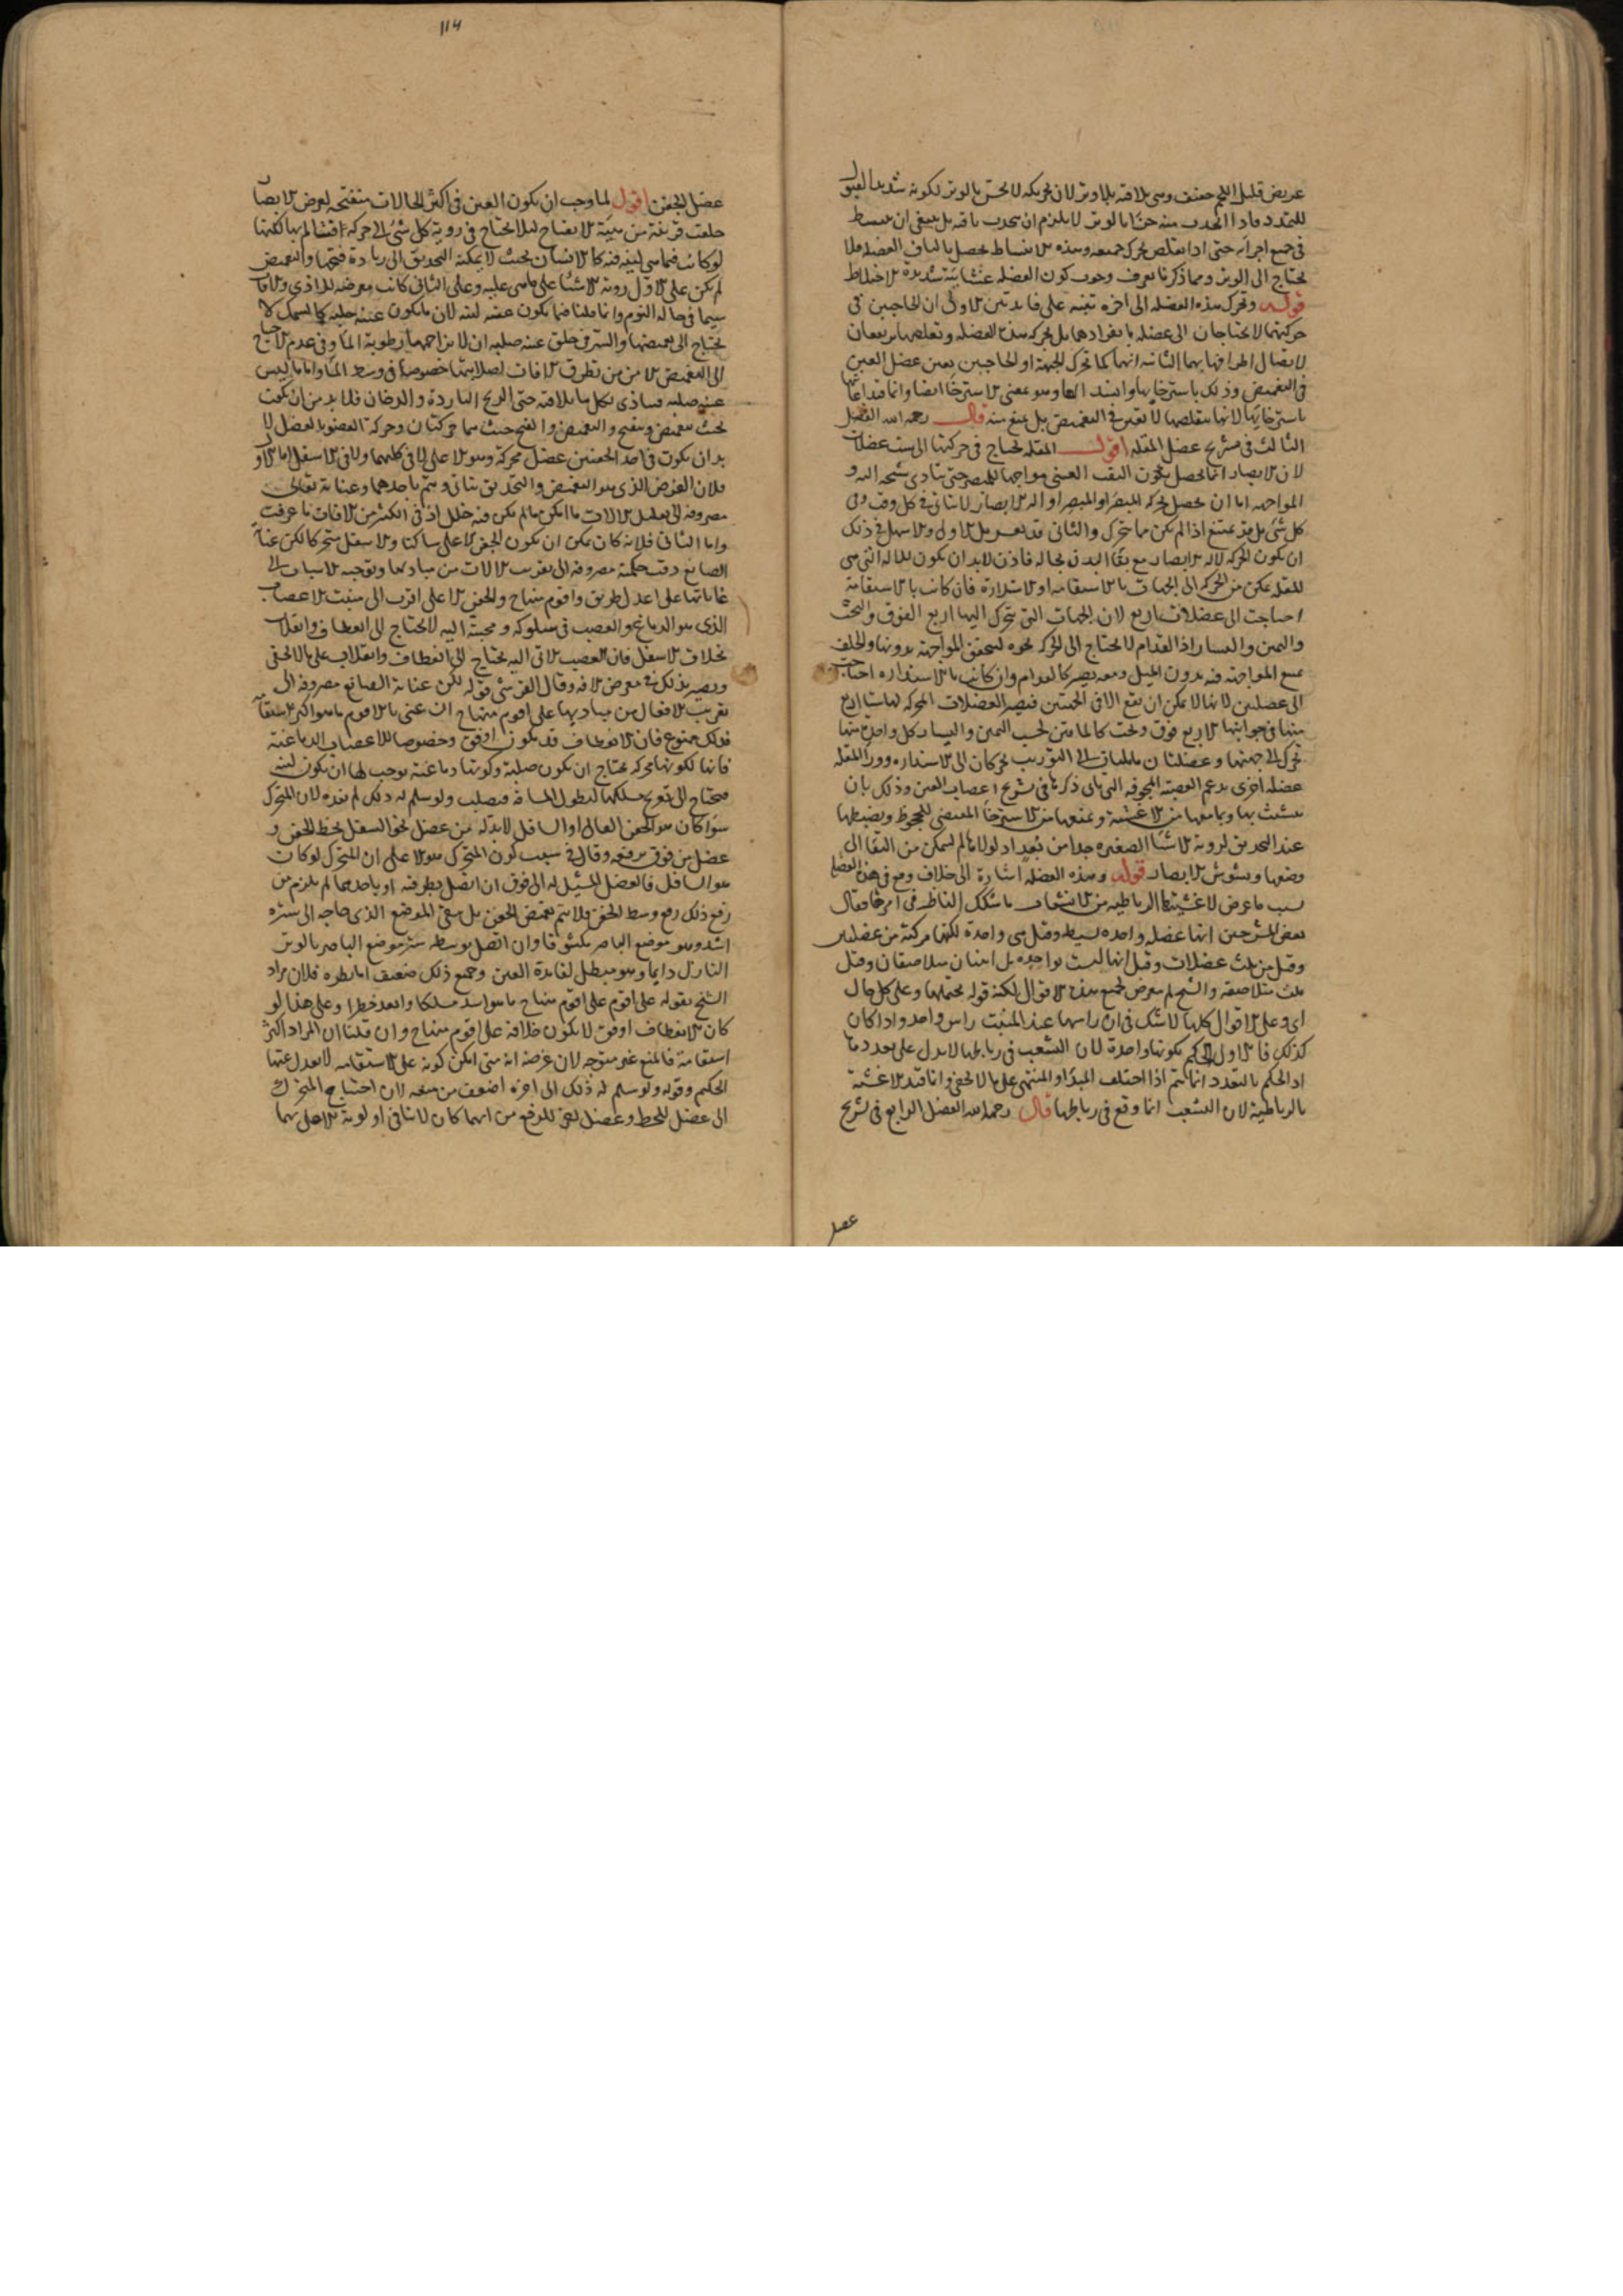 عريض قليل اللحم خفيف وهي بلاقه بلا وتر لان تحريكه لا لحق بالوتر لكونه شديد القبول
للتمدد فاذا انجذب منه جزء بالوتر لا يلزم ان ينجذب باقيه بل ينبغي ان ينبسط
في جميع اجزائه حتى اذا تقلص تحرك جميعه وهذه الانبساط يحصل بالياف العضله فلا
يحتاج الى الوتر ومما ذكرنا يعرف وجوب كون العضله غشائية شديدة الاختلاط
قوله وتحرك هذه العضله الى اخره تنبيه على فائدتين الاولى ان الحاجبين في
حركتهما لا يحتاجان الى عضله بانفرادهما بل بحركة هذه العضله وتقلصها يرتفعان
لاتصال اطرافها بهما الثانيه انها كما تحرك الجبهة او الحاجبين يعين عضل العين
في التغميض وذلك باسترخايها وانسدالها وهو معنى الاسترخا ايضا وانما قيد اعانتها
باسترخايها لانها بتقلصها لا تعين في التغميض بل تمنع منه قال رحمه الله الفصل
الثالث في تشريح عضل المقله اقول المقله تحتاج في حركتها الى ست عضلات
لان الابصار انما يحصل بكون الثقب العنبي مواجها للمبصر حتى يتادى شبحه اليه و
المواجهه اما ان يحصل بحركة المبصَر او المبصِر او الة الابصار لا يتاتى في كل وقت وفي
كل شئ بل قد يمتنع اذا لم يكن مما يتحرك والثاني قد يعسر بل الاولى والاسهل في ذلك
ان يكون الحركة لالة الابصار مع بقاء البدن بحاله فاذن لا بد ان يكون للالة التي هي
المقله تمكن من الحركه الى الجهات بالاستقامه او الاستدارة فان كانت بالاستقامة
احتاجت الى عضلات اربع لان الجهات التي يتحرك اليها اربع الفوق والتحت
واليمين واليسار اذ القدام لا يحتاج الى الحركه نحوه لتحقق المواجهة بدونها والخلف
يمتنع المواجهة فيه بدون الميل ومعه يصير كالقدام وان كانت بالاستداره احتاجت
الى عضلتين لانها لا يمكن ان تقع الا في الجهتين فيصير العضلات المحركه لها ستا اربع
منها في جوانبها الاربع فوق وتحت كالماقين بحسب اليمين واليسار كل واحد منها
تحرك الى جهتها وعضلتان مايلتان الى التوريب يحركان الى الاستداره ووراء المقله
عضله اخرى يدعم العصبة المجوفه التي ياتي ذكرها في تشريح اعصاب العين وذلك بان
يتشبث بها وبما معها من الاغشيه ويمنعها من الاسترخاء المقتضي للجحوظ ويضبطها
عند التحديق لروية الاشيا الصغيره جدا من بُعد اذ لولاها لم يتمكن من البقا الى
وضعها ويشوش الابصار قوله وهذه العضله اشارة الى خلاف وقع في هذه العضله
بسبب ما عرض لاغشيتها الرباطيه من الانشعاب ما شكك الناظر في امرها فقال
بعض المشرحين انها عضله واحده بسيطه وقيل هي واحدة لكنها مركبة من عضلتين
وقيل من ثلث عضلات وقيل انها ليست بواحده بل اثنان متلاصقان وقيل
ثلث متلاصقة والشيخ لم يتعرض لجميع هذه الاقوال لكنه قوله يحتملها وعلى كل حال
اي وعلى الاقوال كلها لا شك في ان راسها عند المنبت راس واحد واذا كان
كذلك فالاولى الحكم بكونها واحدة لان التشعب في رباطها لا يدل على تعدد ما
اذ الحكم بالتعدد انما يتم اذا اختلف المبدا او المنتهى على ما لا يخفى وانما قيد الاغشية
بالرباطية لان التشعب انما وقع في رباطها قال رحمه الله الفصل الرابع في تشريح
عضل
114
عضل الجفن اقول لما وجب ان يكون العين في اكثر الحالات منفتحه لغرض الابصار
خلقت قريبة من هيئة الانفتاح لئلا يحتاج في روية كل شئ الى حركة افتتاح لها لكنها
لو كانت فيما هي لينه فيه كالانسان بحيث لا يمكنه التحديق الى زيادة فتحها والتغميض
لم يكن على الاول روية الاشيا على ما هي عليه وعلى الثاني كانت معرضه للاذى والافات
سيما في حاله النوم وانما قلنا فيما يكون عينه لينه لان ما يكون عينه صلبه كالسمك لا
يحتاج الى تغميضها والسر في خلق عينه صلبه ان لا يزاحمها رطوبة الماء وفي عدم الاحتياج
الى التغميض الامن من تطرق الافات لصلابتها خصوصا في وسط الماء واما ما ليس
عينه صلبه فيتاذى بكل ما يلاقيه حتى الريح الباردة والدخان فلا بد من ان يكون
بحيث تنغمض وتنفتح والتغميض والفتح حيث هما حركتان وحركة العضو بالعضل لا
بد ان يكون في احد الجفنين عضل محركة وهو الاعلى لا في كليهما ولا في الاسفل اما الاول
فلان الغرض الذي هو التغميض والتحديق يتاتى ويتم باحدهما وعناية تعالى
مصروفة الى تقليل الالات ما امكن ما لم يكن فيه خلل اذ في التكثير من الافات ما عرفت
واما الثاني فلانه كان يمكن ان يكون الجفن الاعلى ساكنا والاسفل متحركا لكن عناية
الصانع دقت حكمته مصروفه الى تقريب الالات من مباديها وتوجيه الاسباب الى
غاياتها على اعدل طريق واقوم منهاج والجفن الاعلى اقرب الى منبت الاعصاب
الذي هو الدماغ والعصب في سلوكه ومجيئه اليه لا يحتاج الى انعطاف وانقلاب
بخلاف الاسفل فان العصب الاتي اليه يحتاج الى انعطاف وانقلاب على ما لا يخفى
ويصير بذلك في معرض الافه وقال القرشي قوله لكن عناية الصانع مصروفه الى
تقريب الافعال من مباديها على اقوم منهاج ان عنى بالاقوم ما هو اكثر استقامة
فذلك ممنوع فان الانعطاف قد يكون اوفق وخصوصا للاعصاب الدماغية
فانها لكونها محركه يحتاج ان يكون صلبة وكونها دماغية يوجب لها ان يكون لينة
فتحتاج الى تعريج مسلكها لتطول المسافه فيصلب ولو سلم له ذلك لم يفده لان المتحرك
سواء كان هو الجفن العالي او السافل لا بد له من عضل نحو السفل يحط الجفن و
عضل من فوق يرفعه وقال في سبب كون المتحرك هو الاعلى ان المتحرك لو كان
هو السافل فالعضل المشيل له الى فوق ان اتصل بطرفيه او باحدهما لم يلزم من
رفع ذلك رفع وسط الجفن فلا يتم تغميض الجفن بل يبقى الموضع الذي حاجه الى ستره
اشد وهو موضع الباصر مكشوفا وان اتصل بوسطه ستر موضع الباصر بالوتر
النازل دايما وهو مبطل لفائدة العين وجميع ذلك ضعيف اما نظره فلان مراد
الشيخ بقوله على اقوم على اقوم منهاج ما هو اسد مسلكا وابعد خطرا وعلى هذا لو
كان الانعطاف اوفق لا يكون خلافه على اقوم منهاج وان قلنا ان المراد اكثر
استقامة فالمنع غير متوجه لان غرضه انه متى امكن كونه على الاستقامه لا يعدل عنها
الحكيم وقوله ولو سلم له ذلك الى اخره اضعف من منعه لان احتياج المتحرك
الى عضل للحط وعضل للرفع من ايهما كان لا ينافي اولوية الاعلى بهما